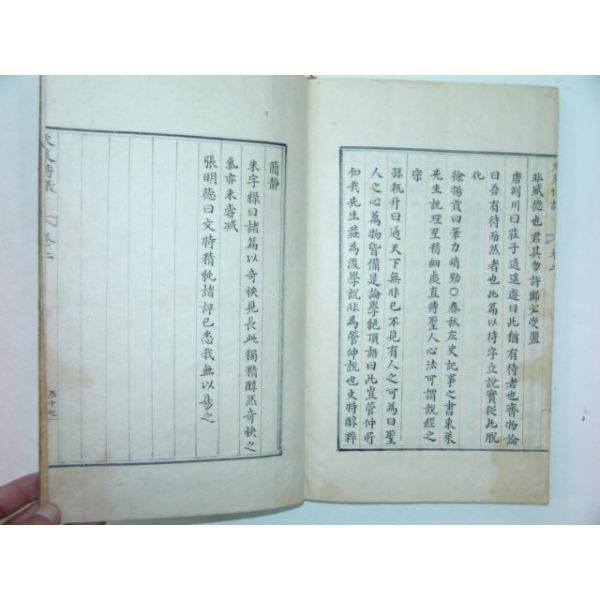 非威德也君其勿許鄭必受盟
唐荊川曰莊子逍遥遊曰此猶有待者也齊物論
曰吾有待而然者也此篇以待字立說實從此脫
化
徐揚貢曰筆力峭勁○春秋左史記事之書東萊
先生說理至精細處直傳聖人心法可謂說經之
宗
孫執升曰通天下無非己不見有人之可為曰聖
人之心萬物皆備是論學絕頂語曰此豈管仲所
知我先生益為後學說非為管仲說也文特醇粹
簡靜
朱字綠曰諸篇以奇快見長此獨精醇然奇快之
氣亦未嘗減
張明德曰文特精純諸評已悉我無以易之
卷二
五十七